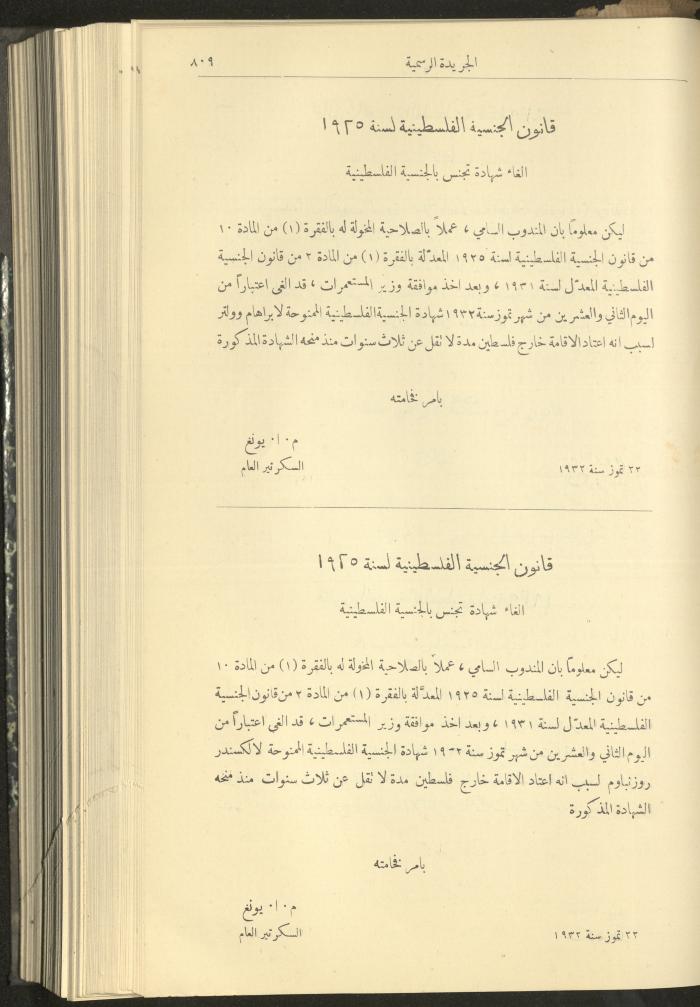 الجريدة الرسمية ٨٠٩
قانون الجنسية الفلسطينية لسنة ١٩٢٥
الغاء شهادة تجنس بالجنسية الفلسطينية
ليكن معلوماً بان المندوب السامي ، عملاً بالصلاحية المخولة له بالفقرة (١) من المادة ١٠
من قانون الجنسية الفلسطينية لسنة ١٩٢٥ المعدّلة بالفقرة (١) من المادة ٢ من قانون الجنسية
الفلسطينية المعدّل لسنة ١٩٣١ ، وبعد اخذ موافقة وزير المستعمرات ، قد الغى اعتباراً من
اليوم الثاني والعشرين من شهر تموز سنة ١٩٣٢ شهادة الجنسية الفلسطينية الممنوحة لابراهام وولتر
لسبب انه اعتاد الاقامة خارج فلسطين مدة لا تقل عن ثلاث سنوات منذ منحه الشهادة المذكورة
بامر فخامته
م ٠ ا ٠ يونغ
٢٢ تموز سنة ١٩٣٢ السكرتير العام
قانون الجنسية الفلسطينية لسنة ١٩٢٥
الغاء شهادة تجنس بالجنسية الفلسطينية
ليكن معلوماً بان المندوب السامي ، عملاً بالصلاحية المخولة له بالفقرة (١) من المادة ١٠
من قانون الجنسية الفلسطينية لسنة ١٩٢٥ المعدَّلة بالفقرة (١) من المادة ٢ من قانون الجنسية
الفلسطينية المعدّل لسنة ١٩٣١ ، وبعد اخذ موافقة وزير المستعمرات ، قد الغى اعتباراً من
اليوم الثاني والعشرين من شهر تموز سنة ١٩٣٢ شهادة الجنسية الفلسطينية الممنوحة لالكسندر
روزنباوم لسبب انه اعتاد الاقامة خارج فلسطين مدة لا تقل عن ثلاث سنوات منذ منحه
الشهادة المذكورة
بامر فخامته
م ٠ ا ٠ يونغ
٢٢ تموز سنة ١٩٣٢ السكرتير العام